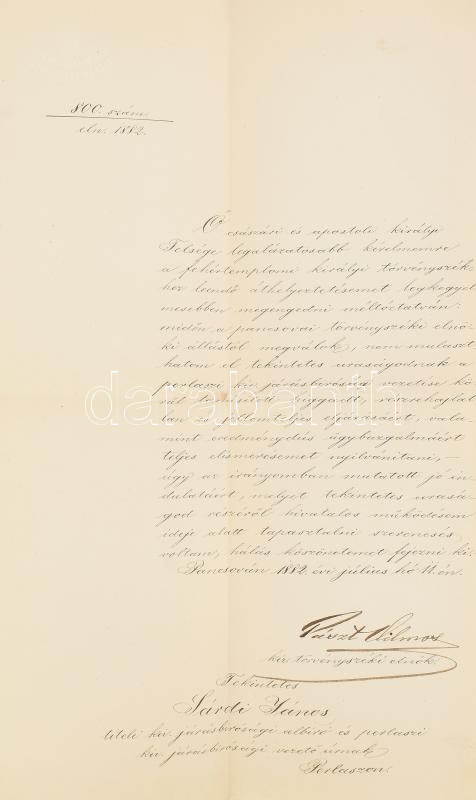 800. szám.
eln. 1882.
Ő császári és apostoli királyi
Felsége legalázatosabb kérelmemre
a fehértemplomi királyi törvényszék-
hez leendő áthelyeztetésemet legkegyel-
mesebben megengedni méltóztatván:
midőn a pancsovai törvényszéki elnö-
ki állástól megválok, nem mulaszt-
hatom el tekintetes uraságodnak a
perlaszi kir. járásbiróság vezetése kö-
rül tanusitott független, részrehajlat-
lan és eljárásáért, vala-
mint eredménydús ügybuzgalmáért
teljes elismerésemet nyilvánitani, –
úgy az irányomban mutatott jó in-
dulatáért, melyet tekintetes urasá-
god részéről hivatalos működésem
ideje alatt tapasztalni szerencsés
voltam, hálás köszönetemet fejezni ki.
Pancsován 1882. évi július hó 11-én.
Vilmos
kir. törvényszéki elnök.
Tekintetes
Sárdi János
titeli kir. járásbirósági albiró és perlaszi
kir. járásbirósági vezető úrnak
Perlaszon.
darabanth